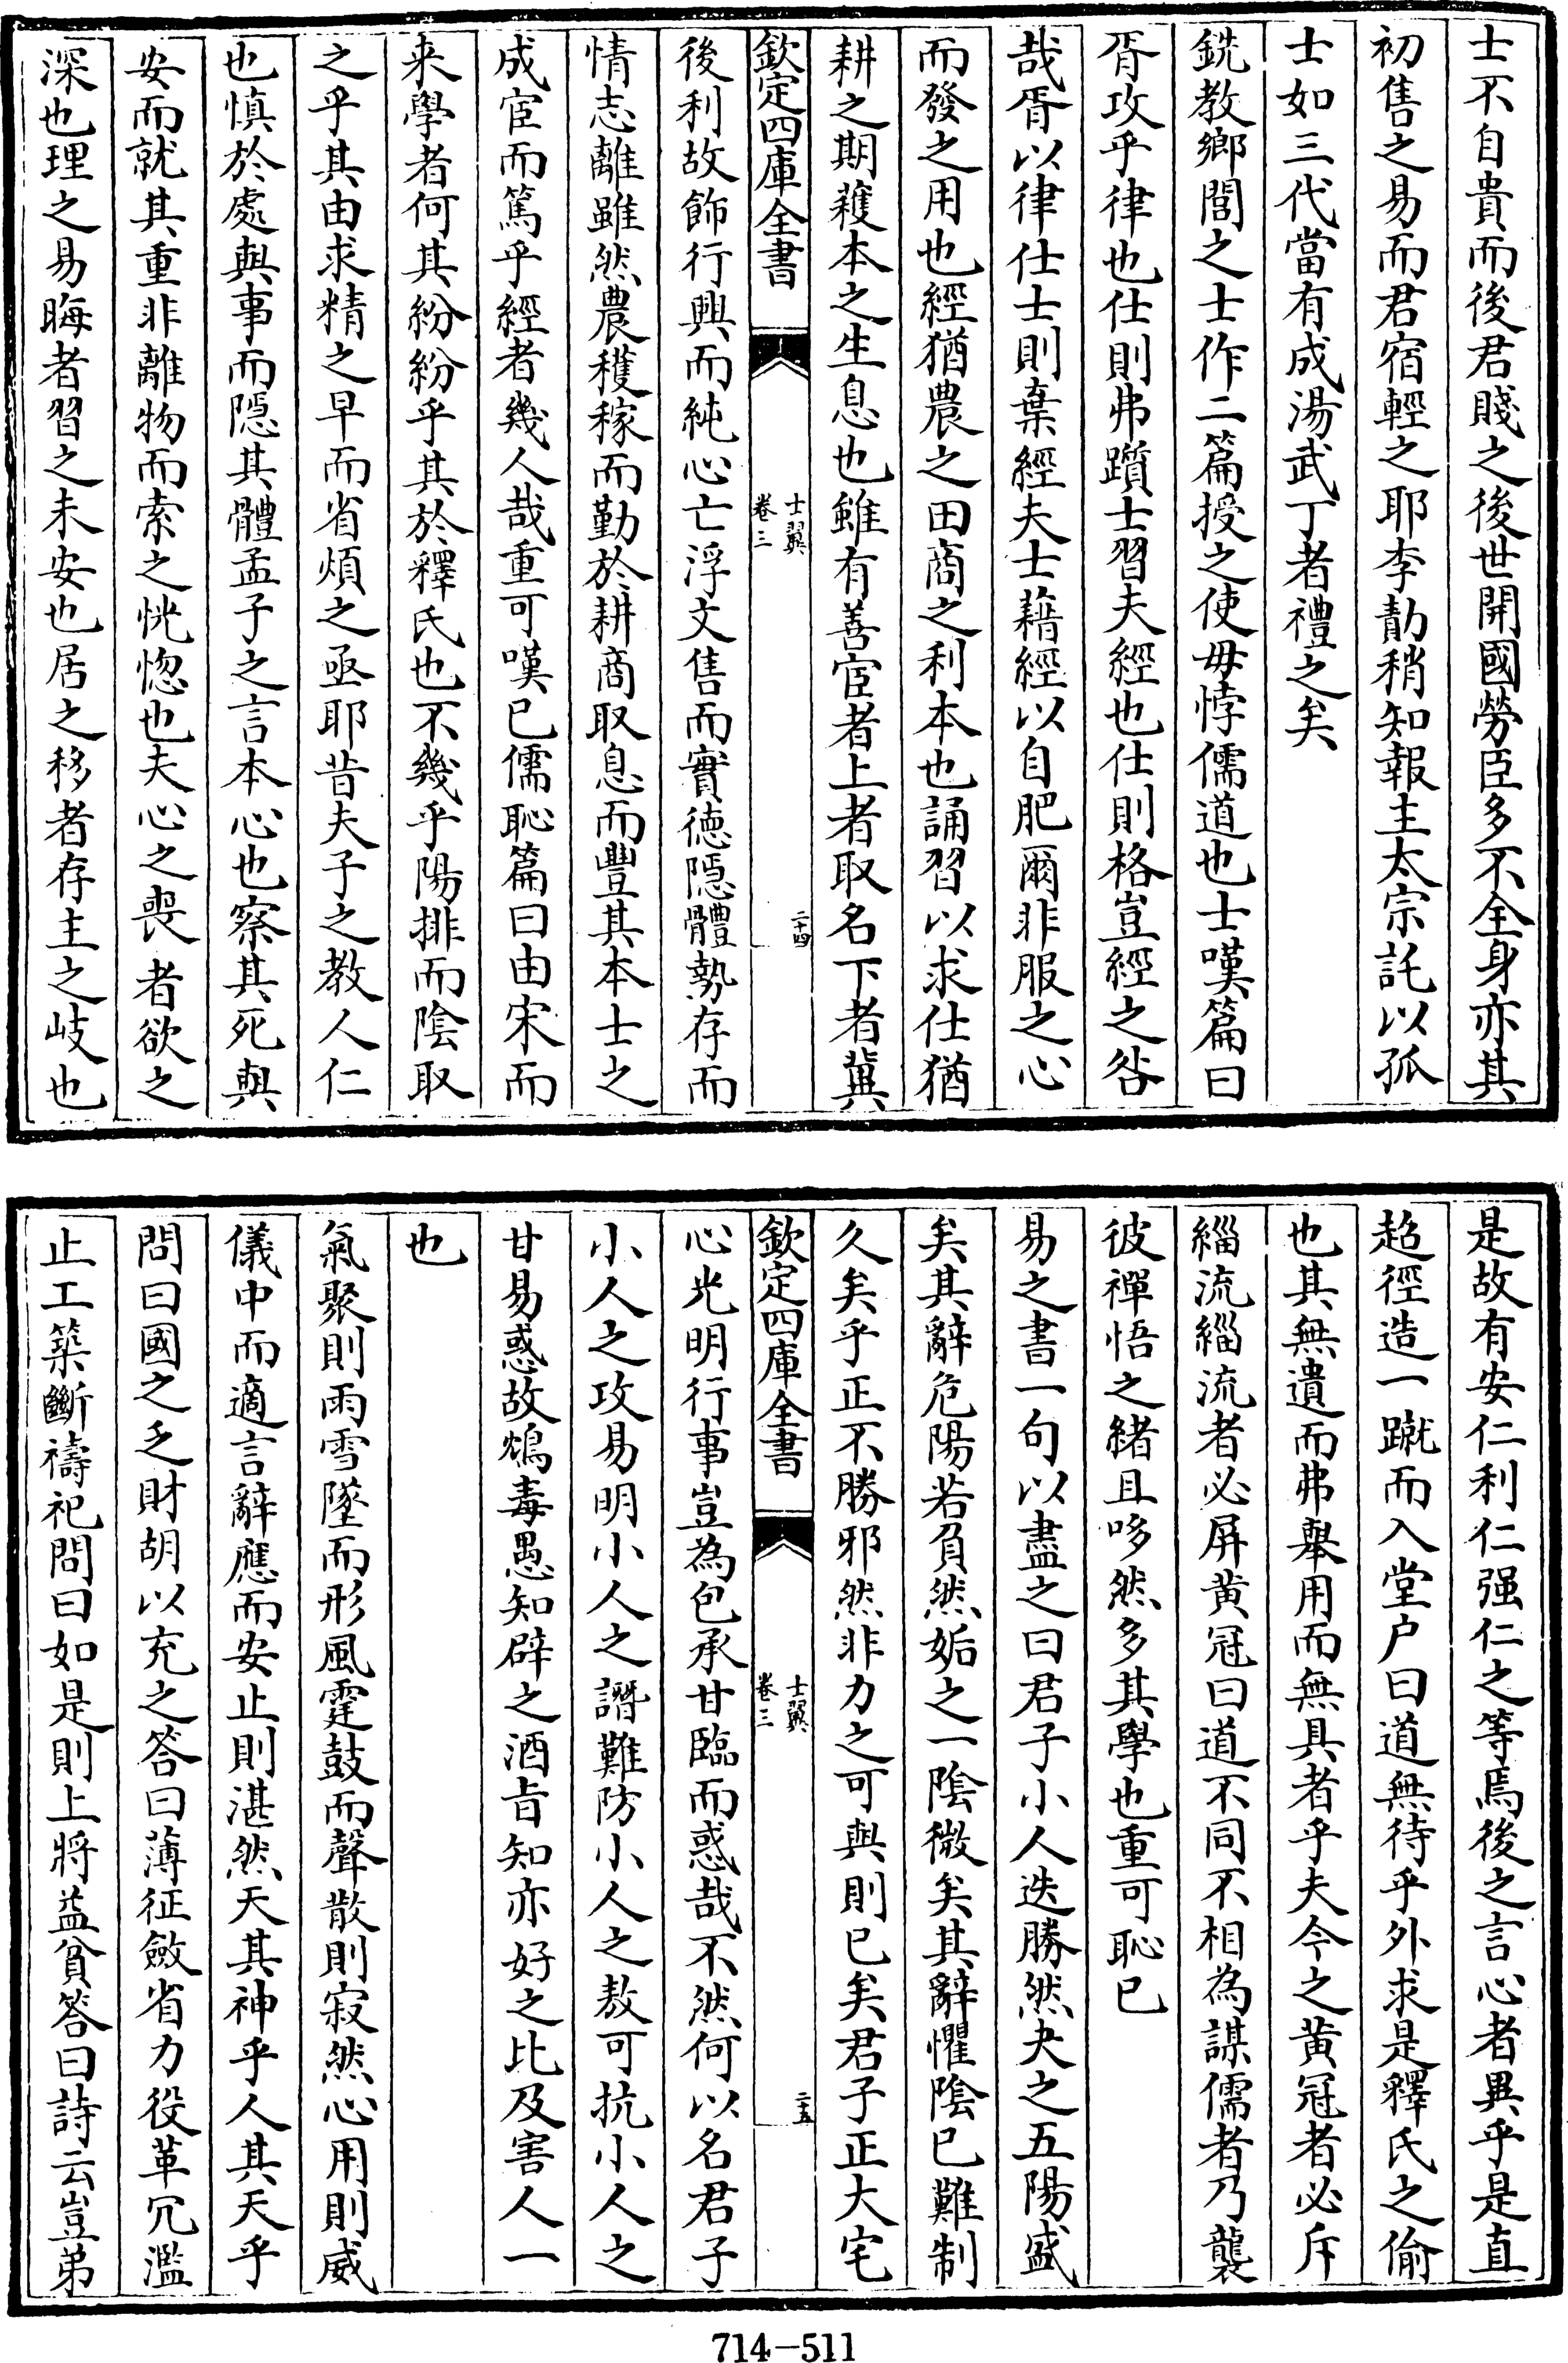 士不自貴而後君賤之後世開國勞臣多不全身亦其
初售之易而君宿輕之耶李勣稍知報主太宗託以孤
士如三代當有成湯武丁者禮之矣
銑教鄉閭之士作二篇授之使毋悖儒道也士嘆篇曰
胥攻乎律也仕則弗躓士習夫經也仕則格豈經之咎
哉胥以律仕士則棄經夫士藉經以自肥爾非服之心
而發之用也經猶農之田商之利本也誦習以求仕猶
耕之期穫本之生息也雖有善宦者上者取名下者冀
欽定四庫全書
士翼
卷三
二十四
後利故飾行興而純心亡浮文售而實德隱體勢存而
情志離雖然農穫稼而勤於耕商取息而豐其本士之
成宦而篤乎經者幾人哉重可嘆已儒恥篇曰由宋而
来學者何其紛紛乎其於釋氏也不幾乎陽排而陰取
之乎其由求精之早而省煩之亟耶昔夫子之教人仁
也慎於處與事而隱其體孟子之言本心也察其死與
安而就其重非離物而索之恍惚也夫心之喪者欲之
深也理之易晦者習之未安也居之移者存主之岐也
是故有安仁利仁强仁之等焉後之言心者異乎是直
超徑造一蹴而入堂户曰道無待乎外求是釋氏之偷
也其無遺而弗舉用而無具者乎夫今之黄冠者必斥
緇流緇流者必屏黄冠曰道不同不相為謀儒者乃襲
彼禪悟之緒且哆然多其學也重可恥已
易之書一句以盡之曰君子小人迭勝然夬之五陽盛
矣其辭危陽若負然姤之一陰微矣其辭懼陰已難制
久矣乎正不勝邪然非力之可與則已矣君子正大宅
欽定四庫全書
士翼
卷三
二十五
心光明行事豈為包承甘臨而惑哉不然何以名君子
小人之攻易明小人之譖難防小人之敖可抗小人之
甘易惑故鴆毒愚知辟之酒旨知亦好之比及害人一
也
氣聚則雨雪墜而形風霆鼓而聲散則寂然心用則威
儀中而適言辭應而安止則湛然天其神乎人其天乎
問曰國之乏財胡以充之答曰薄征斂省力役革冗濫
止工築斷禱祀問曰如是則上將益貧答曰詩云豈弟
714-511